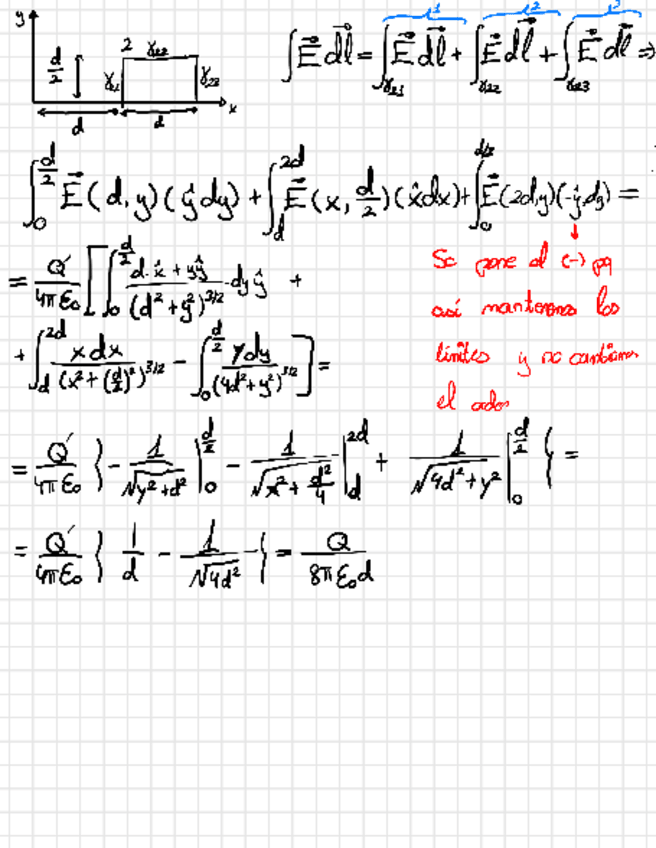 y 2 γ₂₂
d/2 γ₂₁ γ₂₃ x
d d
∫ E⃗ dl⃗ = ∫_γ₂₁ E⃗ dl⃗ + ∫_γ₂₂ E⃗ dl⃗ + ∫_γ₂₃ E⃗ dl⃗ ⇒
∫₀^{d/2} E⃗(d,y)(ŷdy) + ∫_d^{2d} E⃗(x, d/2)(x̂dx) + ∫₀^{d/2} E⃗(2d,y)(-ŷ dy) =
= Q/4πε₀ [ ∫₀^{d/2} (d·x̂ + yŷ)/(d²+y²)^{3/2} · dy ŷ +
+ ∫_d^{2d} xdx/(x²+(d/2)²)^{3/2} − ∫₀^{d/2} ydy/(4d²+y²)^{3/2} ] =
Se pone el (-) pq
así mantenemos los
límites y no cambiamos
el orden
= Q/4πε₀ { − 1/√(y²+d²) |₀^{d/2} − 1/√(x²+d²/4) |_d^{2d} + 1/√(4d²+y²) |₀^{d/2} { =
= Q/4πε₀ { 1/d − 1/√(4d²) { = Q/8πε₀d